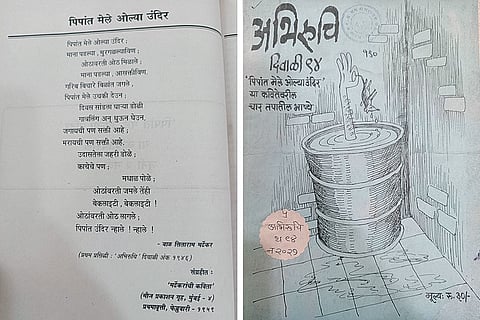 पिपांत मेले ओल्या उंदिर
पिपांत मेले ओल्या उंदिर ;
माना पडल्या, मुरगळल्याविण ;
ओठांवरती ओठ मिळाले ;
माना पडल्या, आसक्तीविण.
गरिब बिचारे बिळांत जगले,
पिपांत मेले उचकी देउन ;
दिवस सांडला घाऱ्या डोळीं
गात्रलिंग अन् धुऊन घेउन.
जगायची पण सक्ती आहे ;
मरायची पण सक्ती आहे.
उदासतेला जहरी डोळे ;
काचेचे पण ;
मधाळ पोळे ;
ओठांवरती जमले तेंही
बेकलाइटी , बेकलाइटी !
ओठांवरती ओठ लागले ;
पिपांत उंदिर न्हाले ! न्हाले !
- बाळ सिताराम मर्ढेकर
(प्रथम प्रसिद्धी : 'अभिरुचि' दिवाळी अंक १९४६)
संग्रहीत :
'मर्ढेकरांची कविता'
(मौज प्रकाशन गृह, मुंबई - ४)
प्रथमावृत्ती, फेब्रुवारी - १९५९
अभिरुचि
दिवाळी ९४
'पिपांत मेले ओल्या उंदिर'
या कवितेवरील
चार तपातील भाष्ये
अभिरुचि
मूल्य: रु. ३०/-